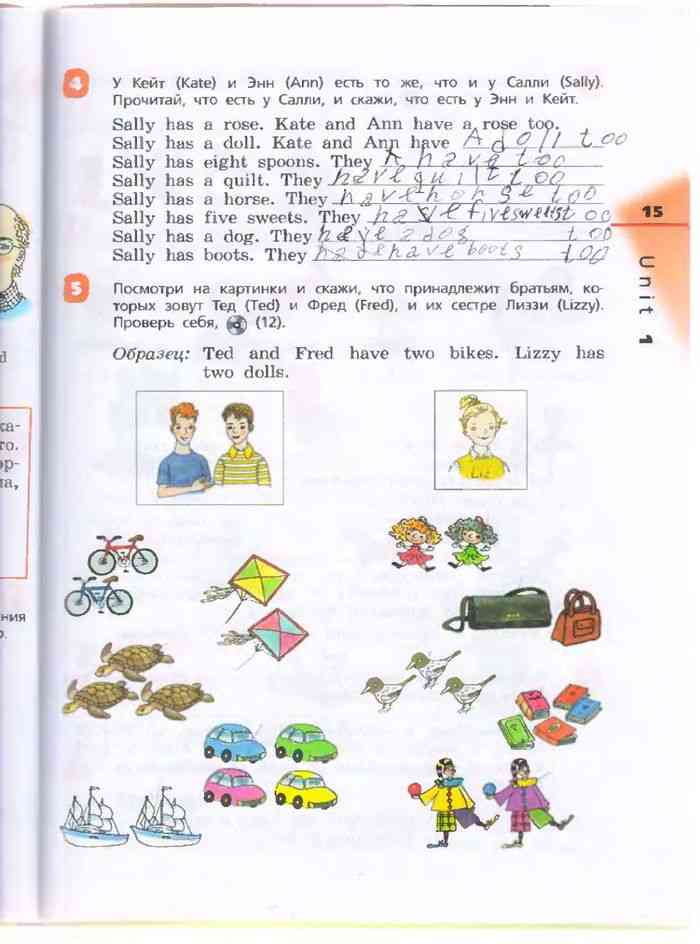 4
У Кейт (Kate) и Энн (Ann) есть то же, что и у Салли (Sally).
Прочитай, что есть у Салли, и скажи, что есть у Энн и Кейт.
Sally has a rose. Kate and Ann have a rose too.
Sally has a doll. Kate and Ann have A doll too
Sally has eight spoons. They have too
Sally has a quilt. They have quilt too
Sally has a horse. They have horse too
Sally has five sweets. They have five sweets too
Sally has a dog. They have a dog too
Sally has boots. They have boots too
15
Unit 1
5
Посмотри на картинки и скажи, что принадлежит братьям, ко-
торых зовут Тед (Ted) и Фред (Fred), и их сестре Лиззи (Lizzy).
Проверь себя, (12).
Образец: Ted and Fred have two bikes. Lizzy has
two dolls.
Liz
d
ка-
го.
ор-
ма,
ния